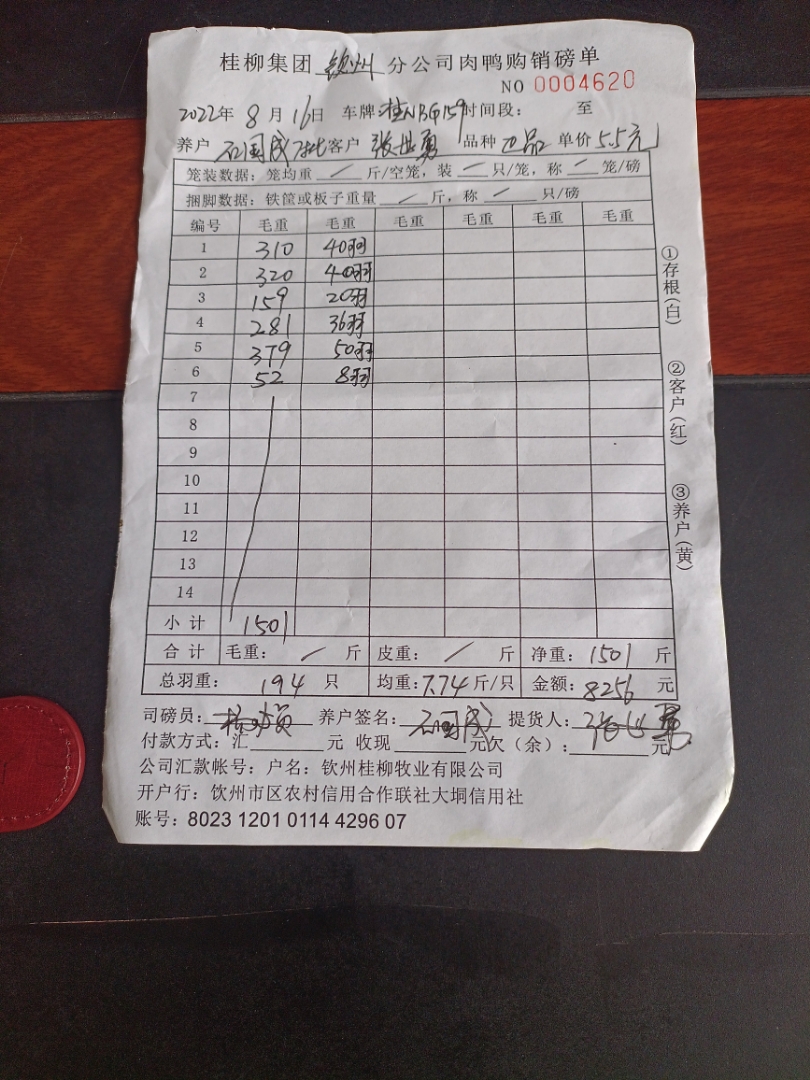 桂柳集团 钦州 分公司肉鸭购销磅单
NO 0004620
2022年 8 月 16日 车牌:桂NBG159 时间段: 至
养户 石国成 客户 张世勇 品种 次品 单价 5.5元
笼装数据: 笼均重 / 斤/空笼, 装 / 只/笼, 称 / 笼/磅
捆脚数据: 铁筐或板子重量 / 斤, 称 / 只/磅
编号 毛重 毛重 毛重 毛重 毛重 毛重
1 310 40羽
2 320 40羽
3 159 20羽
4 281 36羽
5 379 50羽
6 52 8羽
7
8
9
10
11
12
13
14
小计 1501
合计 毛重: / 斤 皮重: / 斤 净重: 1501 斤
总羽重: 194 只 均重: 7.74 斤/只 金额: 8256 元
司磅员: 养户签名: 石国成 提货人:
付款方式: 汇 元 收现 元欠(余): 元
公司汇款帐号: 户名: 钦州桂柳牧业有限公司
开户行: 钦州市区农村信用合作联社大垌信用社
账号: 8023 1201 0114 4296 07
①存根(白)
②客户(红)
③养户(黄)